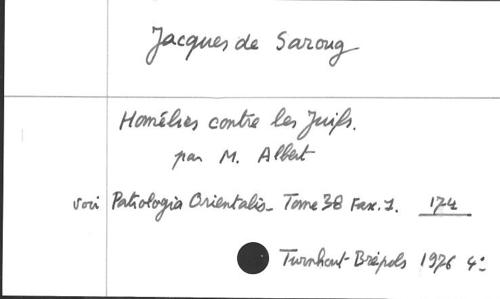 Jacques de Saroug
Homélies contre les Juifs.
par M. Albert
voir Patrologia Orientalis - Tome 38 Fax. 1. 174
Turnhout-Brépols 1976 4°